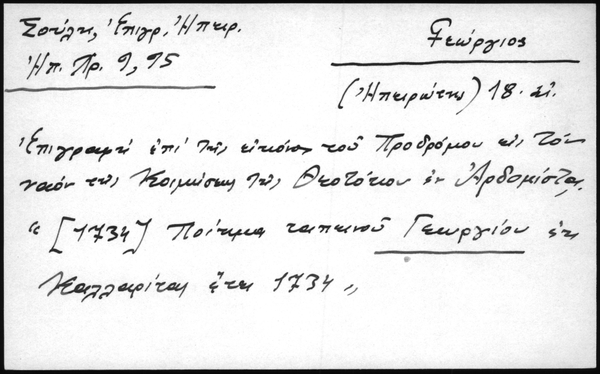 Σούλη, Ἐπιγρ. Ἠπειρ.
Ἠπ. Χρ. 9, 95
Γεώργιος
(Ἠπειρώτης) 18. αἰ.
Ἐπιγραφὴ ἐπὶ τῆς εἰκόνος τοῦ Προδρόμου εἰς τὸν
ναὸν τῆς Κοιμήσεως τῆς Θεοτόκου ἐν Ἀρδομίστᾳ.
« [1734] Ποίημα ταπεινοῦ Γεωργίου ἐκ
Καλλαρίτας ἔτει 1734 »